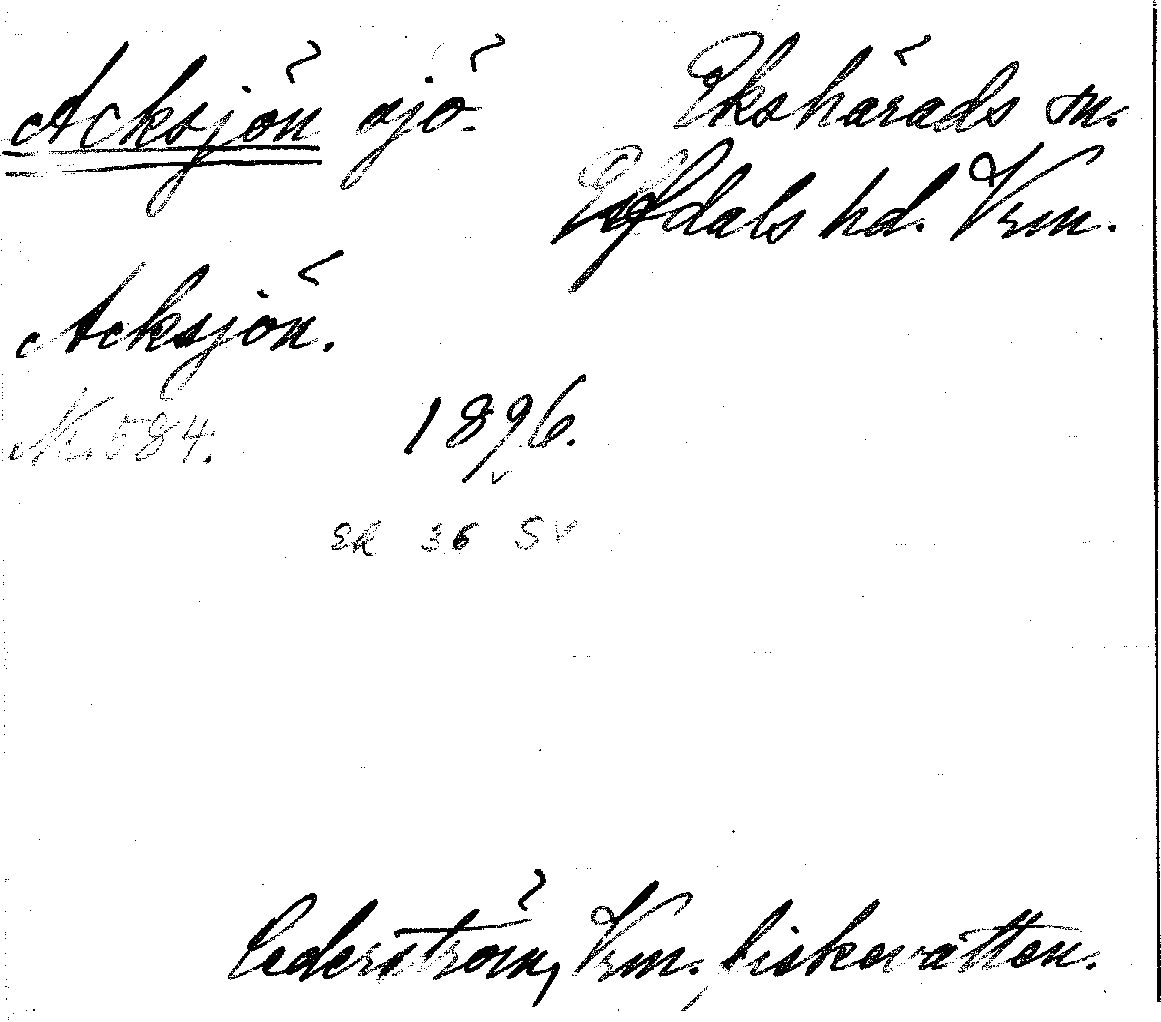 Acksjön sjö. Ekshärads sn.
Elfdals hd. Vrm.
Acksjön.
N. 584. 1896.
ER 36 SV
Cederström, Vrm. fiskevatten.